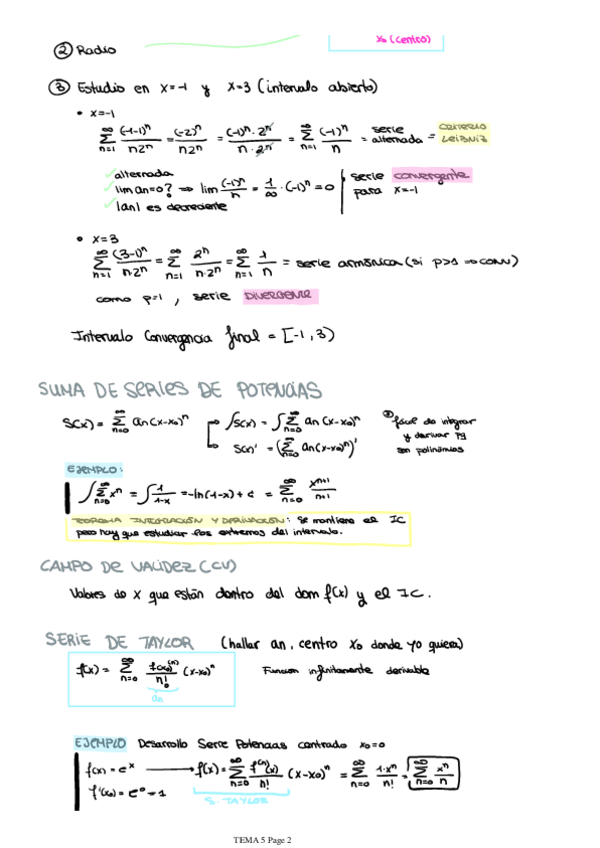 x₀ (centro)
② Radio
③ Estudio en x=-1 y x=3 (intervalo abierto)
• x=-1
∞∑n=1 (-1-1)ⁿ/n2ⁿ = (-2)ⁿ/n2ⁿ = (-1)ⁿ·2ⁿ/n·2ⁿ = ∞∑n=1 (-1)ⁿ/n = serie alternada = CRITERIO LEIBNIZ
✓ alternada
✓ lim an=0? ⇒ lim (-1)ⁿ/n = 1/∞ · (-1)ⁿ = 0 | serie convergente para x=-1
✓ |an| es decreciente
• x=3
∞∑n=1 (3-1)ⁿ/n·2ⁿ = ∞∑n=1 2ⁿ/n·2ⁿ = ∞∑n=1 1/n = serie armónica (si p>1 ⇒ conv)
como p=1, serie DIVERGENTE
Intervalo Convergencia final = [-1,3)
SUMA DE SERIES DE POTENCIAS
S(x) = ∞∑n=0 an(x-x₀)ⁿ → ∫S(x) = ∫∞∑n=0 an (x-x₀)ⁿ
→ S(x)' = (∞∑n=0 an(x-x₀)ⁿ)'
fácil de integrar y derivar pq son polinomios
EJEMPLO:
∫∞∑n=0 xⁿ = ∫1/1-x = -ln(1-x) + c = ∞∑n=0 xⁿ⁺¹/n+1
TEOREMA INTEGRACIÓN Y DERIVACIÓN: Se mantiene el IC
pero hay que estudiar los extremos del intervalo.
CAMPO DE VALIDEZ (CV)
Valores de x que están dentro del dom f(x) y el IC.
SERIE DE TAYLOR (hallar an, centro x₀ donde yo quiera)
f(x) = ∞∑n=0 f(x₀)⁽ⁿ⁾/n! (x-x₀)ⁿ Función infinitamente derivable
an
EJEMPLO Desarrollo Serie Potencias centrado x₀=0
f(x) = eˣ → f(x) = ∞∑n=0 f⁽ⁿ⁾(x)/n! (x-x₀)ⁿ = ∞∑n=0 1·xⁿ/n! = ∞∑n=0 xⁿ/n
f'(x₀) = e⁰ = 1
S. TAYLOR
TEMA 5 Page 2